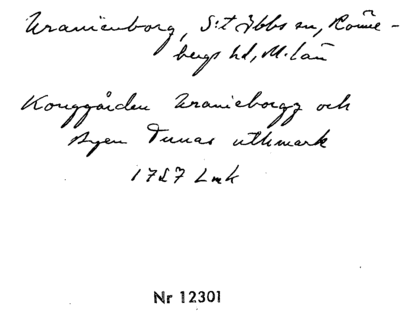 Uranienborg, S:t Ibbs sn, Rönne-
bergs hd, M. län
Kongsgården Uranieborgz och
Byen Tunas uthmark
17 7 Lmk
Nr 12301